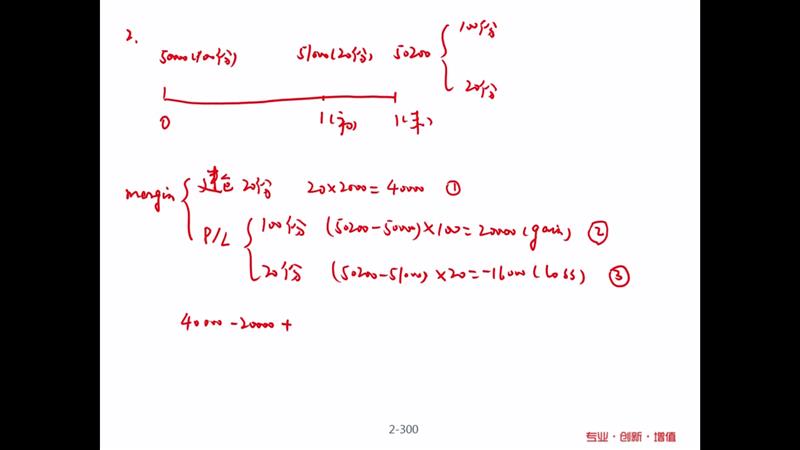 2.
50000(100份) 51000(20份) 50200 { 100份
20份
0 1(初) 1(末)
margin { 建仓 20份 20×2000=40000 ①
P/L { 100份 (50200-50000)×100=20000(gain) ②
20份 (50200-51000)×20=-16000(loss) ③
40000-20000+
2-300
专业·创新·增值